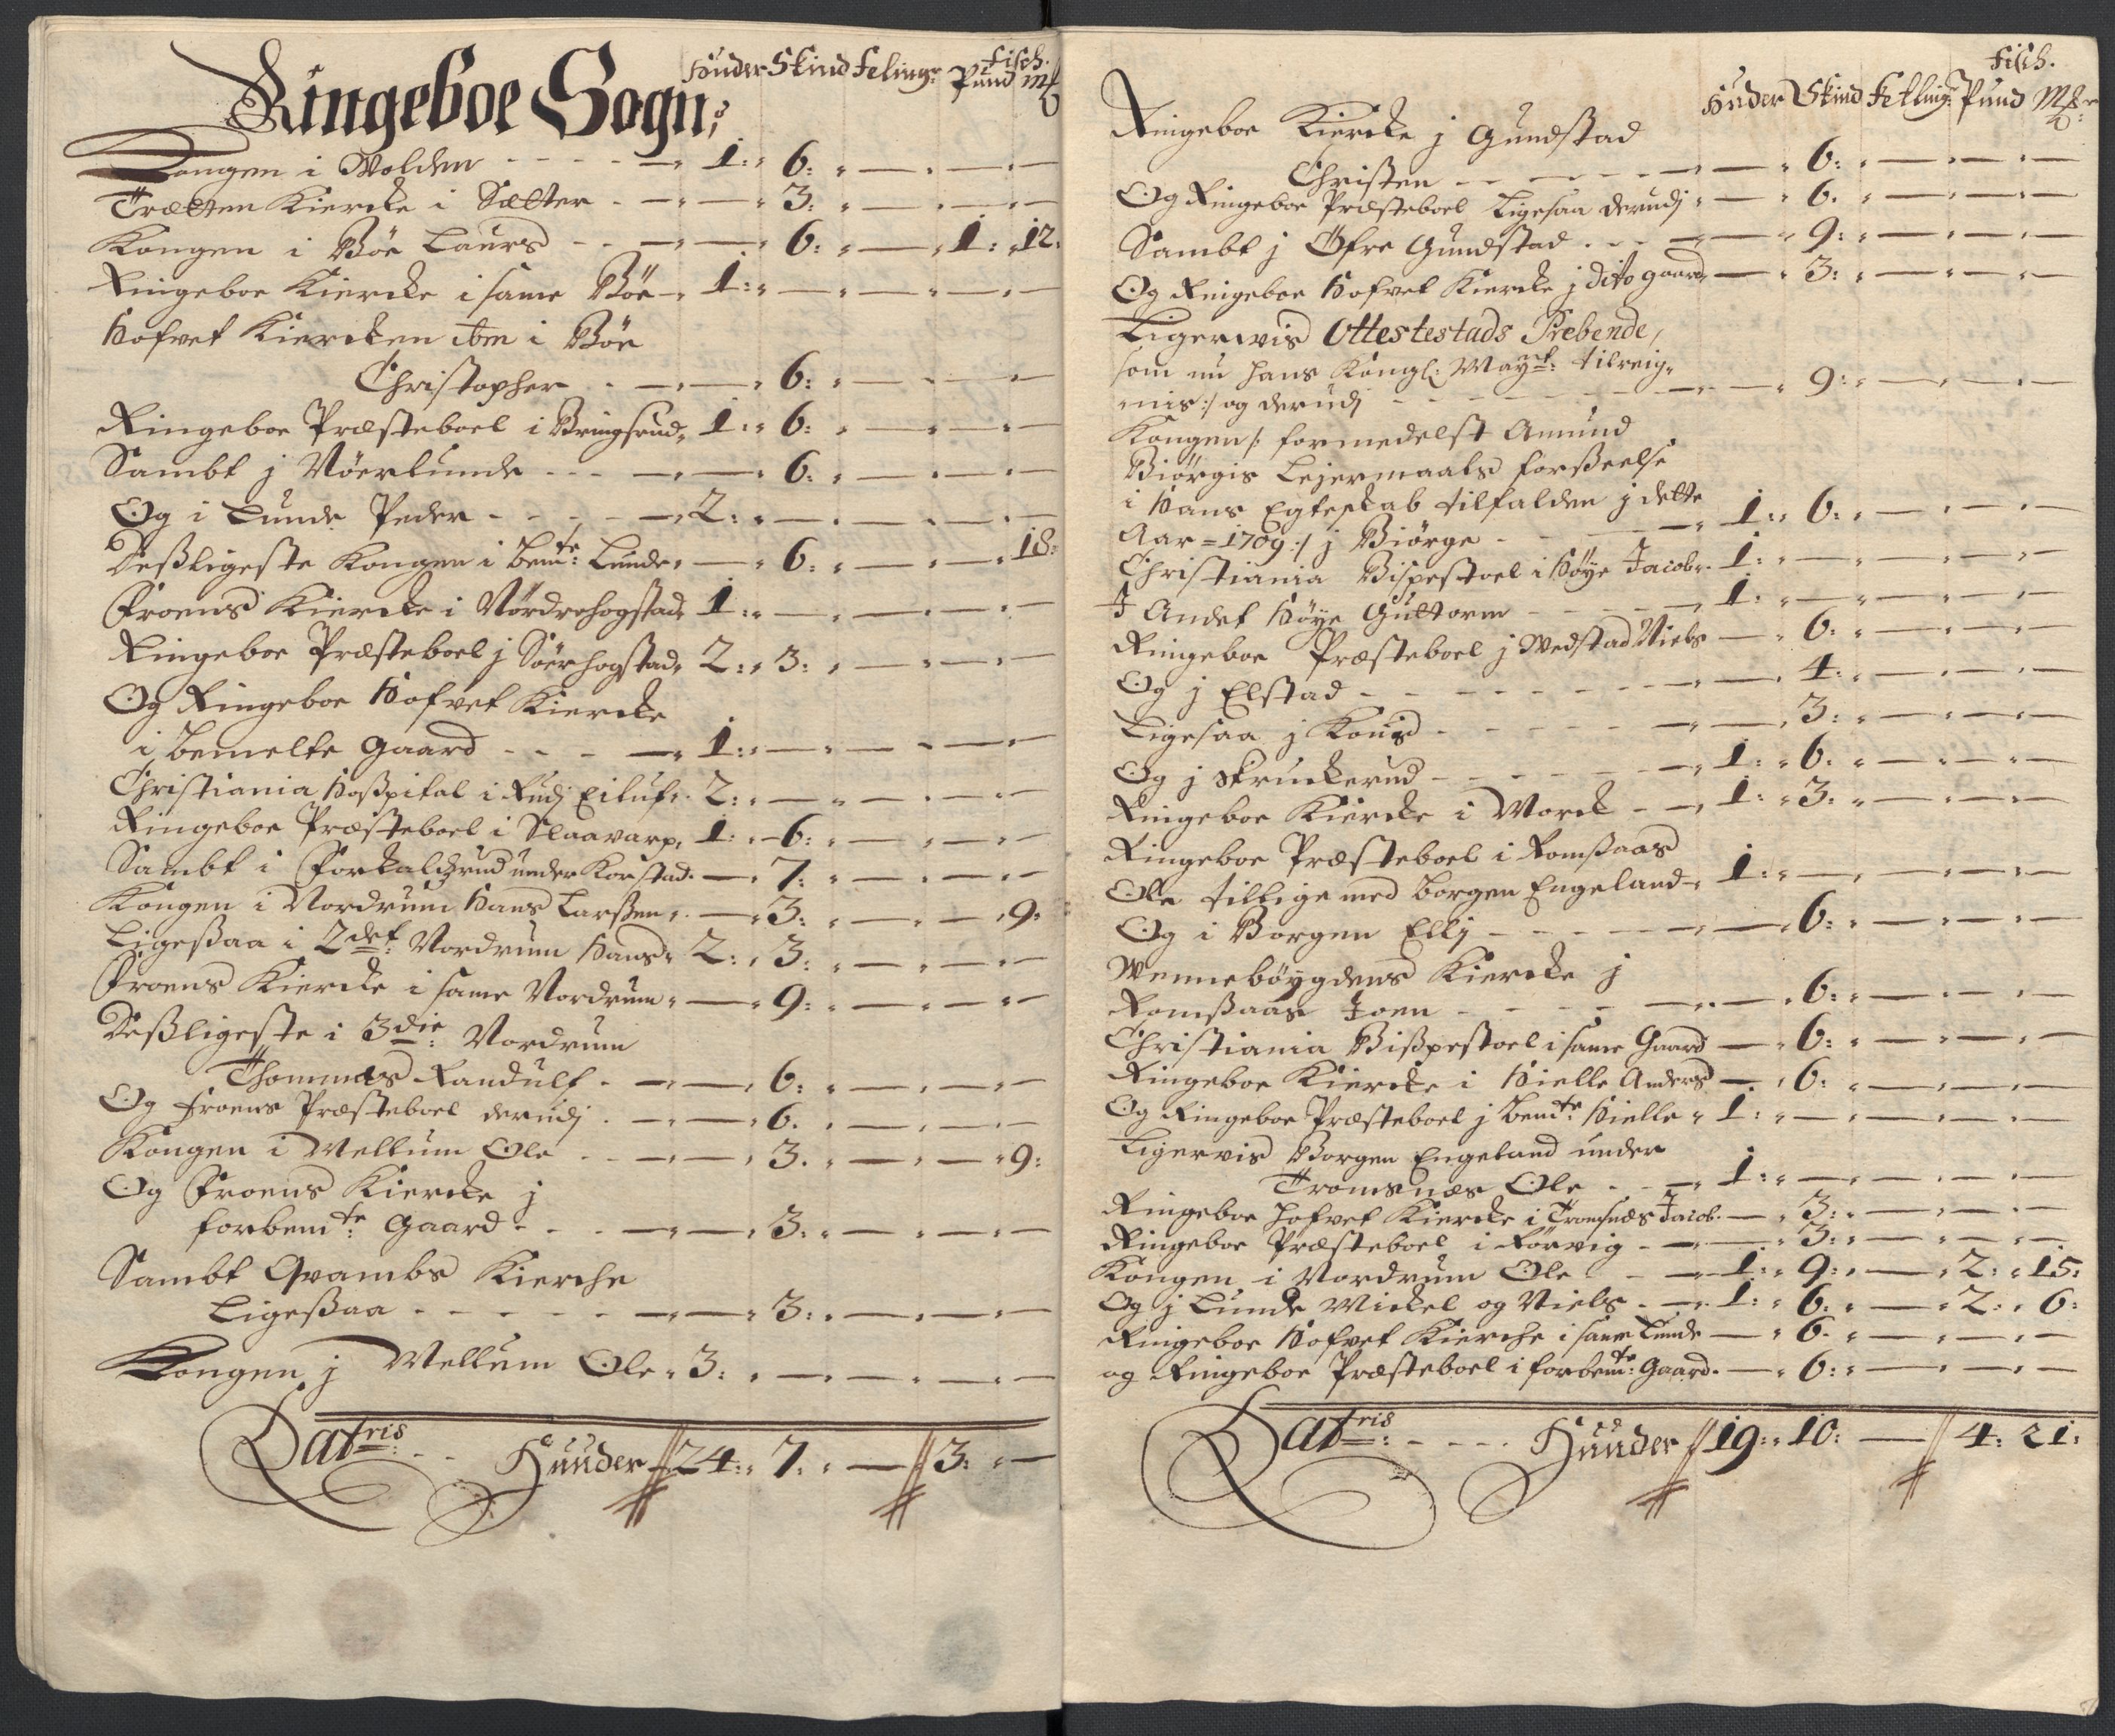 Fisch.
Huder Skind Felinger Pund Mk
Ringeboe Sogn;
Kongen i Wolden - - - - 1: 6: — — —
Trætten Kiercke i Sætter - — 3: — — —
Kongen i Böe Laurs - - — 6: — 1: 12:
Ringeboe Kiercke i same Böe 1: — — — —
Hofvet Kiercken ibm i Böe
Christopher - — 6: — — —
Ringeboe Præsteboel i Bringsrud 1: 6: — — —
Sambt j Nöerlunde - - - — 6: — — —
Og i Lunde Peder - - - - 2: — — — —
Deßligeste Kongen i bemte: Lunde — 6: — — 18:
Froens Kiercke i Nördrehogstad 1: — — — —
Ringeboe Præsteboel j Söerhogstad 2: 3: — — —
Og Ringeboe Hofvet Kiercke
i bemelte Gaard - - - 1: — — — —
Christiania Hoßpital i Rudj Eiluf 2: — — — —
Ringeboe Præsteboel i Slaavarp 1: 6: — — —
Sambt i Forkalßrud under Korstad — 7: — — —
Kongen i Nordrum Hans Larßen — 3: — — 9:
Ligeßaa i 2det Nordrum Hans 2: 3: — — —
Froens Kiercke i same Nordrum — 9: — — —
Deßligeste i 3die: Nordrum
Thommas Randulf - — 6: — — —
Og Froens Præsteboel derudj - — 6. — — —
Kongen i Mellum Ole - - — 3. — — 9:
Og Froens Kiercke j
forbemte: Gaard - - - — 3: — — —
Sambt Qvambs Kierche
Ligeßaa - - - - - — 3: — — —
Kongen j Mellum Ole 3: — — — —
Latris: - - Hunder 24: 7: — 3: —
Fisch.
Huder Skind Fetlinger Pund Mker
Ringeboe Kiercke j Gundstad
Christen - - - - — 6: — — —
Og Ringeboe Præsteboel Ligesaa derudj — 6. — — —
Sambt j Öfre Gundstad - - - — 9: — — —
Og Ringeboe Hofvet Kiercke j dito gaard — 3: — — —
Ligerwis Ottestestads Præbende,
som nu hans Kongl: Mayt: tilreig-
nis:/ og derudj - - - - - — 9: — — —
Kongen /: formedelst Amund
Biörgis Lejermaals forßeelse
i Hans Egteskab tilfalden j dette
Aar = 1709:/ j Biörge - - - 1: 6: — — —
Christiania Bispestoel i Höye Jacob 1: — — — —
J Andet Höye Guttorm - - - 1: — — — —
Ringeboe Præsteboel j Wedstad Niels — 6: — — —
Og j Elstad - - - - - — 4: — — —
Ligesaa j Kouß - - - - — 3: — — —
Og j Skruckerud - - - - 1: 6: — — —
Ringeboe Kiercke i Morck - - 1: 3: — — —
Ringeboe Præsteboel i Romßaas
Ole tillige med borgen Engeland 1: — — — —
Og i Borgen Ellj - - - — 6: — — —
Wennebøygdens Kiercke j
Romßaas Joen - - - - — 6: — — —
Christiania Bißpestoel i same Gaard — 6: — — —
Ringeboe Kiercke i Kielle Anders — 6: — — —
Og Ringeboe Præsteboel j bemte: Kielle 1: — — — —
Ligervis Borgen Engeland under
Tromsnæs Ole - - 1: — — — —
Ringeboe hofvet Kiercke i Tromsnæs Jacob — 3: — — —
Ringeboe Præsteboel i Rörvig - — 3: — — —
Kongen i Nordrum Ole - 1: 9: — 2: 15:
Og j Lunde Mickel og Niels - 1: 6: — 2: 6:
Ringeboe Hofvet Kierche i same Lunde — 6. — — —
og Ringeboe Præsteboel i forbemte: Gaard — 6: — — —
Latris: - - - - Hunder 19: 10: — 4: 21: